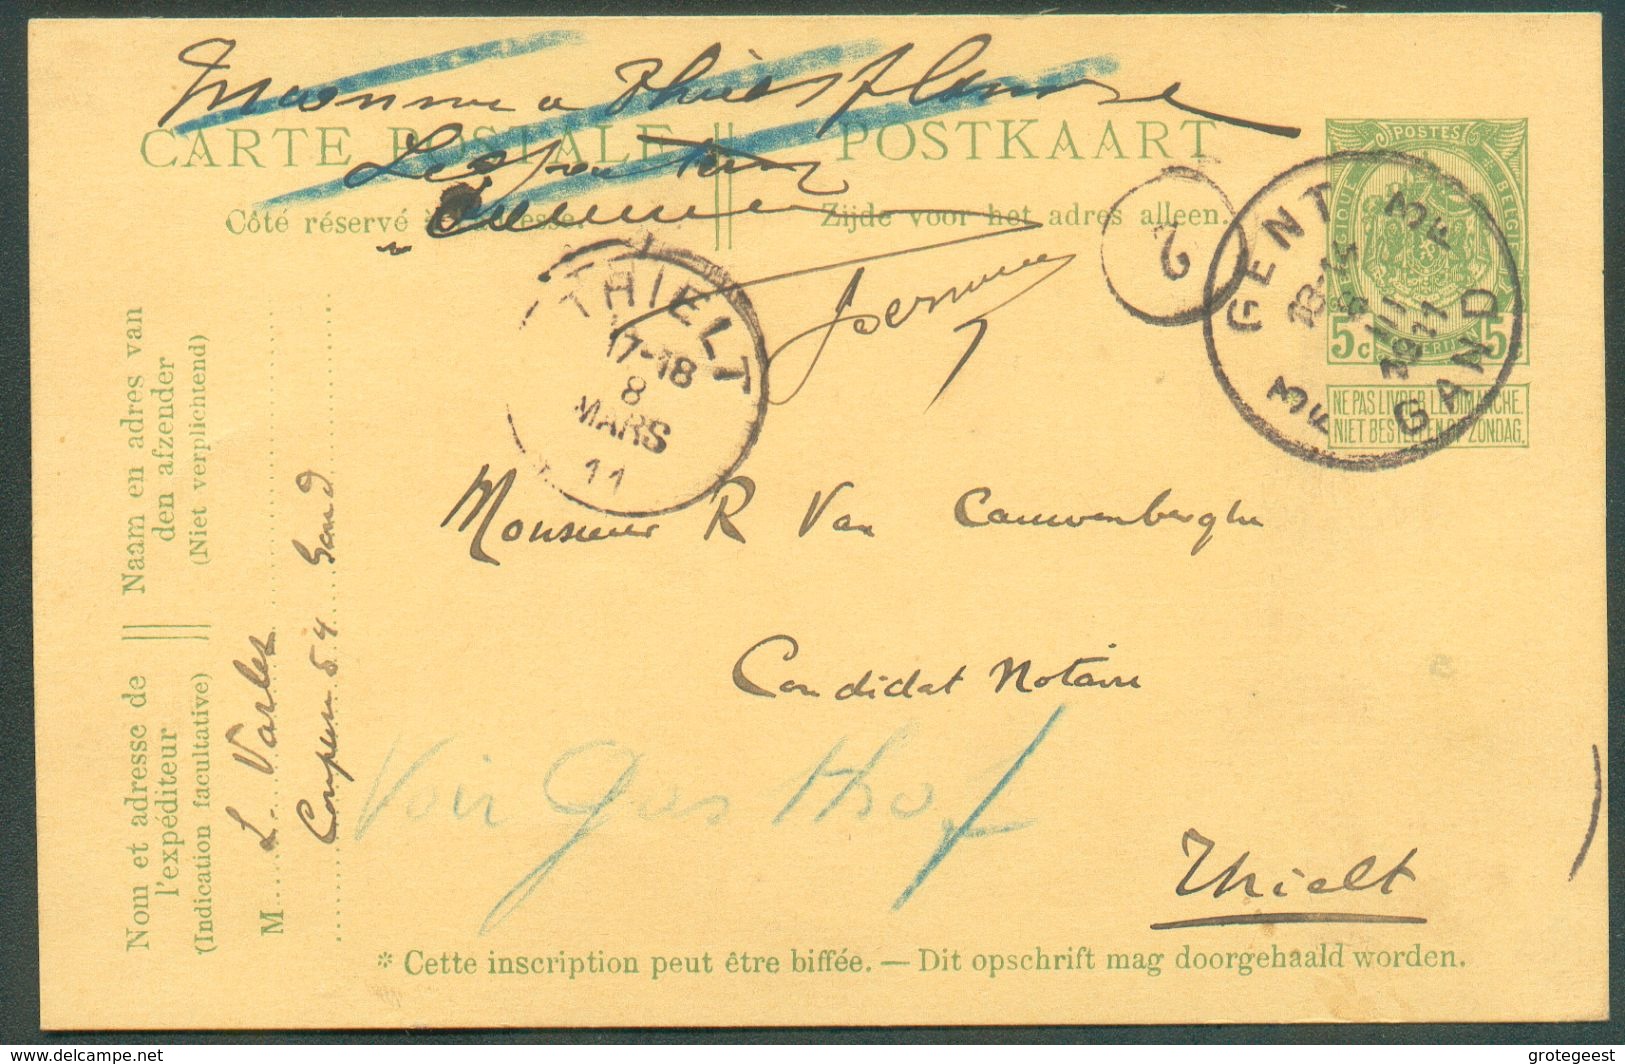 Inconnu a Thielt
CARTE POSTALE POSTKAART
Le facteur
Côté réservé à l'adresse. Zijde voor het adres alleen.
POSTES
BELGIQUE
5c 5c
NE PAS LIVRER LE DIMANCHE.
NIET BESTELLEN OP ZONDAG.
GENT 3F
13-14
8 MRT
1911
3F GAND
2
THIELT
17-18
8
MARS
11
Monsieur R Van Cauwenberghe
Candidat Notaire
Voir Gasthof
Thielt
Naam en adres van
den afzender
(Niet verplichtend)
Nom et adresse de
l'expéditeur
(Indication facultative)
M. L. Varlez
Coupure 54 Gand
* Cette inscription peut être biffée. — Dit opschrift mag doorgehaald worden.
delcampe.net
grotegeest